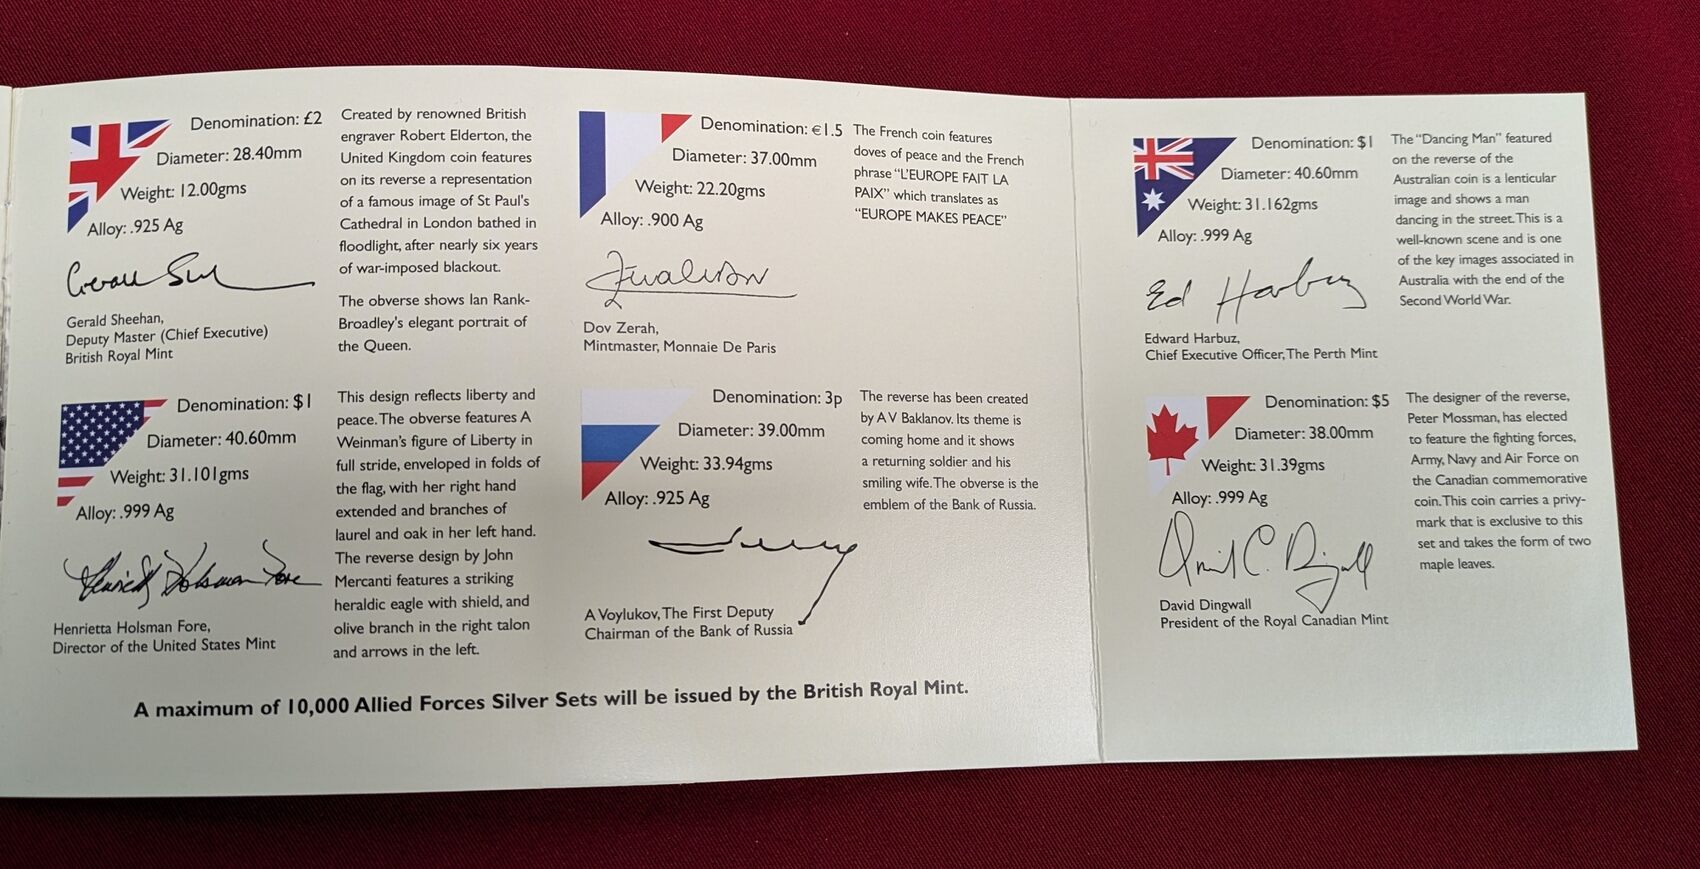 Denomination: £2
Diameter: 28.40mm
Weight: 12.00gms
Alloy: .925 Ag
Gerald Sheehan,
Deputy Master (Chief Executive)
British Royal Mint
Created by renowned British
engraver Robert Elderton, the
United Kingdom coin features
on its reverse a representation
of a famous image of St Paul's
Cathedral in London bathed in
floodlight, after nearly six years
of war-imposed blackout.
The obverse shows Ian Rank-
Broadley's elegant portrait of
the Queen.
Denomination: $1
Diameter: 40.60mm
Weight: 31.101gms
Alloy: .999 Ag
Henrietta Holsman Fore
Henrietta Holsman Fore,
Director of the United States Mint
This design reflects liberty and
peace. The obverse features A
Weinman's figure of Liberty in
full stride, enveloped in folds of
the flag, with her right hand
extended and branches of
laurel and oak in her left hand.
The reverse design by John
Mercanti features a striking
heraldic eagle with shield, and
olive branch in the right talon
and arrows in the left.
Denomination: €1.5
Diameter: 37.00mm
Weight: 22.20gms
Alloy: .900 Ag
Dov Zerah,
Mintmaster, Monnaie De Paris
The French coin features
doves of peace and the French
phrase "L'EUROPE FAIT LA
PAIX" which translates as
"EUROPE MAKES PEACE"
Denomination: 3p
Diameter: 39.00mm
Weight: 33.94gms
Alloy: .925 Ag
A Voylukov, The First Deputy
Chairman of the Bank of Russia
The reverse has been created
by A V Baklanov. Its theme is
coming home and it shows
a returning soldier and his
smiling wife. The obverse is the
emblem of the Bank of Russia.
A maximum of 10,000 Allied Forces Silver Sets will be issued by the British Royal Mint.
Denomination: $1
Diameter: 40.60mm
Weight: 31.162gms
Alloy: .999 Ag
Ed Harbuz
Edward Harbuz,
Chief Executive Officer, The Perth Mint
The "Dancing Man" featured
on the reverse of the
Australian coin is a lenticular
image and shows a man
dancing in the street. This is a
well-known scene and is one
of the key images associated in
Australia with the end of the
Second World War.
Denomination: $5
Diameter: 38.00mm
Weight: 31.39gms
Alloy: .999 Ag
David C. Dingwall
David Dingwall
President of the Royal Canadian Mint
The designer of the reverse,
Peter Mossman, has elected
to feature the fighting forces,
Army, Navy and Air Force on
the Canadian commemorative
coin. This coin carries a privy-
mark that is exclusive to this
set and takes the form of two
maple leaves.